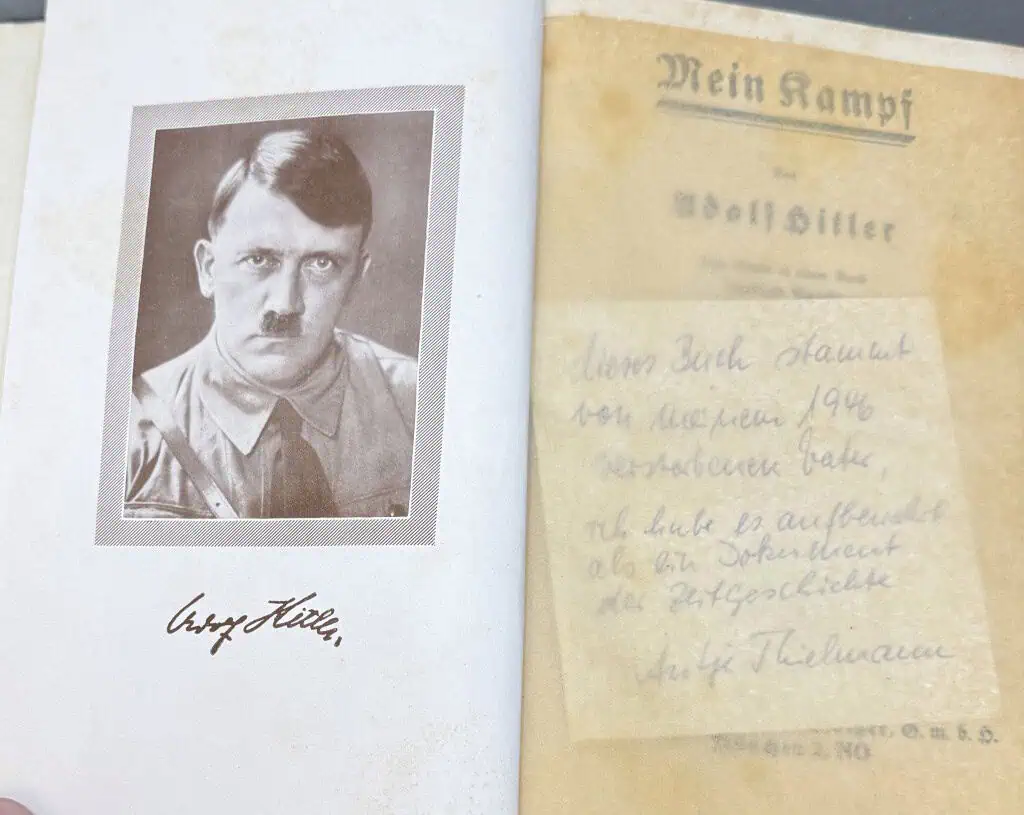 Adolf Hitler.
Mein Kampf
Von
Adolf Hitler
Dieses Buch stammt
von meinem 1946
verstorbenen Vater,
ich habe es aufbewahrt
als ein Dokument
der Zeitgeschichte
Antje Thielmann
G. m. b. H.
München 2, NO